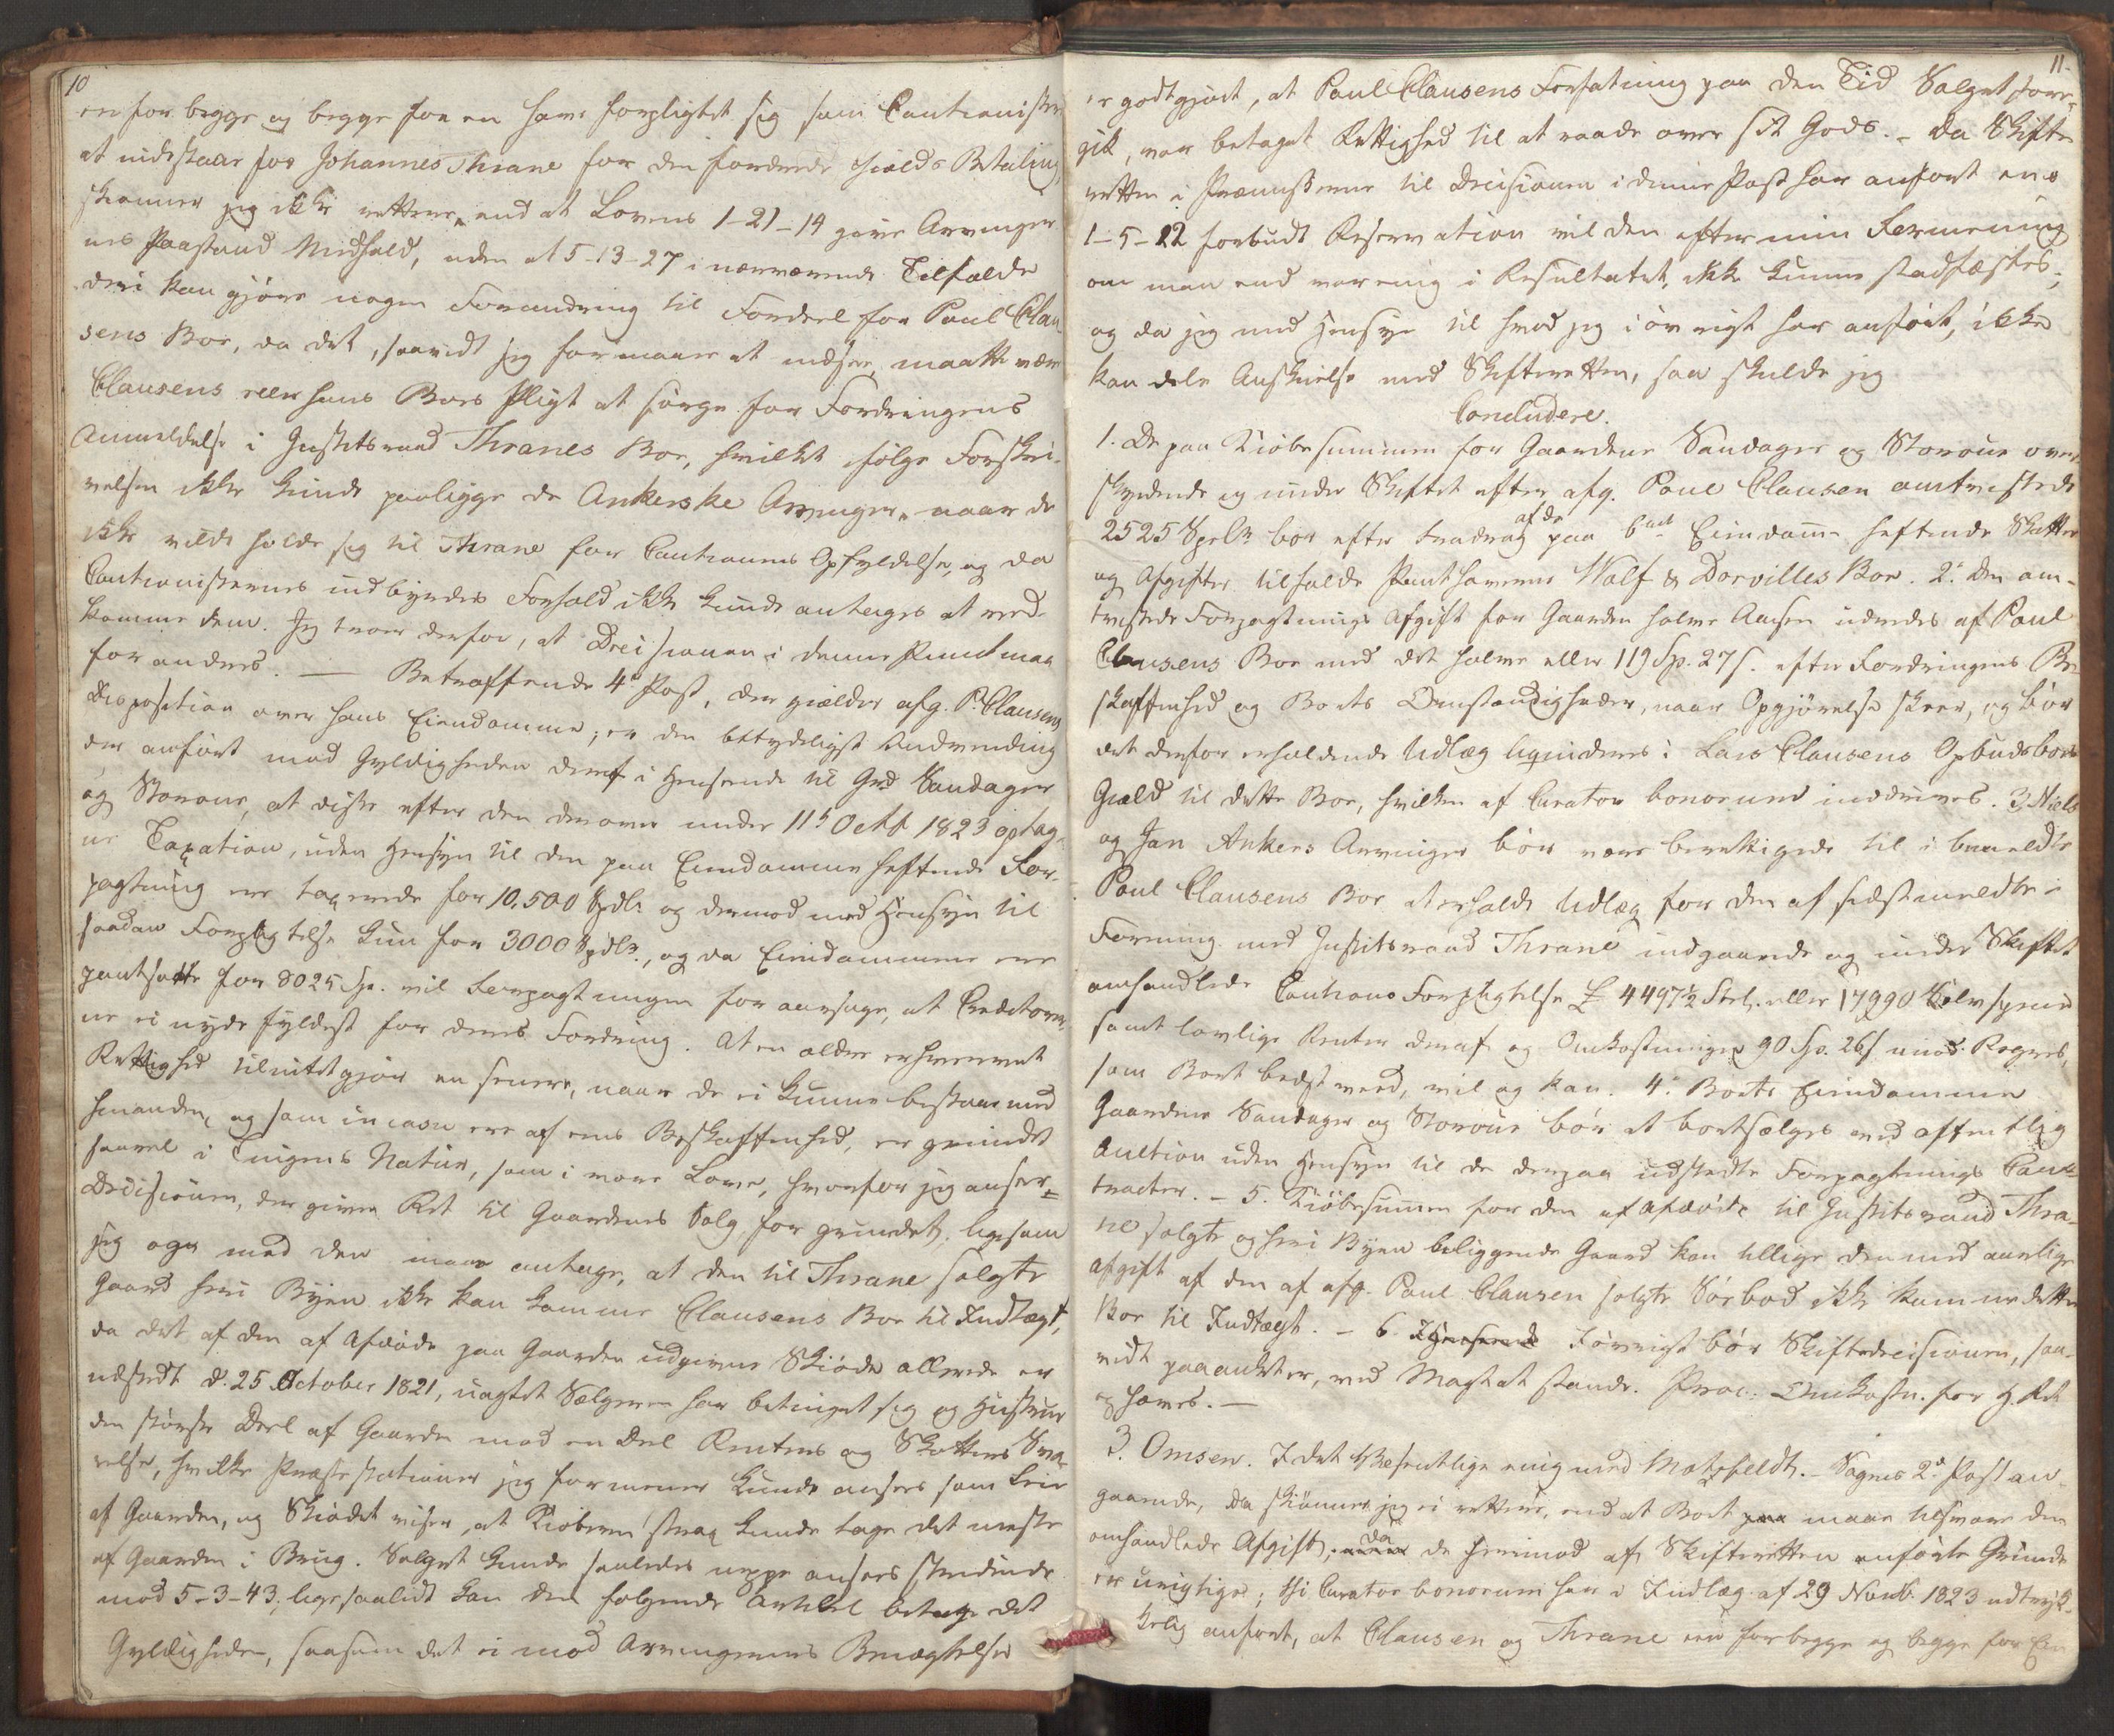 10
en for begge og begge for en have forpligtet sig som Cautionister
at indestaae for Johannes Thrane for den fordrede Gjælds Betaling,
skjønner jeg ikke rettere, end at Lovens 1-21-14 giver Arvinger-
nes Paastand Medhold, uden at 5-13-27 i nærværende Tilfælde
deri kan gjøre nogen Forandring til Fordeel for Paul Clau-
sens Boe, da det, saavidt jeg formaaer at indsee, maatte være
Clausens eller hans Boes Pligt at sørge for Fordringens
Anmeldelse i Justitsraad Thranes Boe, hvilket ifølge Forskri-
velsen ikke kunde paaligge de Ankerske Arvinger, naar de
ikke vilde holde sig til Thrane for Cautionens Opfyldelse, og da
Cautionisternes indbyrdes Forhold ikke kunde antages at ved-
komme dem. Jeg troer derfor, at Decisionen i denne Punct maa
forandres. — Betræffende 4de Post, der gjælder afg. P. Clausens
Disposition over hans Eiendomme; er den betydeligste Indvending
der anført mod Gyldigheden deraf i Henseende til Grd Sandager
og Storøue, at disse efter den derover under 11te Octb 1823 optag-
ne Taxation, uden Hensyn til den paa Eiendommen heftende For-
pagtning ere taxerede for 10,500 Spdlr og dermod med Hensyn til
saadan Forpligtelse kun for 3000 Spdlr., og da Eiendommene ere
pantsatte for 8025 Sp. vil Forpagtningen foraarsage, at Creditorer-
ne ei nyde Fyldest for deres Fordring. At en ældre erhvervet
Rettighed tilintetgjør en senere, naar de ei kunne bestaae med
hinanden, og som in casu ere af eens Beskaffenhed, er grundet
saavel i Tingens Natur, som i vore Love, hvorfor jeg anseer
Decisionen, der giver Ret til Gaardenes Salg for grundet, ligesom
jeg ogsaa med den maae antage, at den til Thrane solgte
Gaard her i Byen ikke kan komme Clausens Boe til Indtægt,
da det af den af Afdøde paa Gaarden udgivne Skiøde allerede er
udstedt d. 25 October 1821, uagtet Sælgeren har betinget sig og Hustrue
den største Deel af Gaarden mod en Deel Renters og Skatters Sva-
relse, hvilke Præstationer jeg formener kunde ansees som Leie
af Gaarden, og Skiødet viser, at Kiøberen strax kunde tage det meste
af Gaarden i Brug. Salget kunde saaledes neppe ansees stridende
mod 5-3-43, ligesaalidt kan den følgende Artikel betage det
Gyldigheden, saasom det ei mod Arvingernes Benægtelse
11.
er godtgjort, at Paul Clausens Forfatning paa den Tid Salget fore-
gik, var betaget Rettighed til at raade over sit Gods. – Da Skifte-
retten i Præmisserne til Decisionen i denne Post har anført en
1-5-22 forbudt Reservation vil den efter min Formening
om man end var enig i Resultatet, ikke kunne stadfæstes,
og da jeg med Hensyn til hvad jeg i øvrigt har anført, ikke
kan dele Anskuelse med Skifteretten, saa skulde jeg
Concludere.
1. De paa Kiøbesummen for Gaardene Sandager og Storøue over-
skydende og under Skiftet efter afg. Poul Clausen omtvistede
2525 Spdlr bør efter Fradrag af de paa bemt Eiendomme heftende Skatter
og Afgifter tilfalde Panthaverne Wolf & Dorvilles Boe. 2: den om-
tvistede Forpagtnings Afgift for Gaarden Holme Aasen udredes af Poul
Clausens Boe med det halve eller 119 Sp. 27 s. efter Fordringens Be-
skaffenhed og Boets Omstændigheder, naar Opgjørelse skeer, og bør
det derfor erholdende Udlæg liqvideres i Lars Clausens Opbudsboes
Giæld til dette Boe, hvilken af Curator bonorum inddrives. 3, Niels
og Jan Ankers Arvinger bør være berettigede til i bemeldte
Poul Clausens Boe at erholde Udlæg for den af sidstmeldte i
Forening med Justitsraad Thrane indgaaede og under Skiftet
omhandlede Cautions Forpligtelse £ 4497½ Sterl. eller 17990 Sølvspecier
samt lovlige Renter deraf og Omkostninger 90 Sp. 26 s mod Regres,
som Boet bedst veed, vil og kan. 4. Boets Eiendomme
Gaardene Sandager og Storøue bør at bortsælges ved offentlig
Auction uden Hensyn til de derpaa udstedte Forpagtnings Con-
tracter. – 5. Kiøbesummen for den af Afdøde til Justitsraad Thra-
ne solgte og her i Byen beliggende Gaard kan tillige den med aarlige
Afgift af den af afg. Paul Clausen solgte Søebod ikke komme dette
Boe til Indtægt. – 6. I Henseende Iøvrigt bør Skiftedecisionen, saa-
vidt paaanket er, ved Magt at stande. Proc. Omkostn. for H. Ret
ophæves. —
3. Omsen. I det Væsentlige enig med Motzfeldt. – Sagens 2den Post an-
gaaende, da skiønner jeg ei rettere, end at Boet paa maae tilsvare den
omhandlede Afgift, da de herimod af Skifteretten anførte Grunde
er urigtige; thi Curator bonorum har i Indlæg af 29 Novb. 1823 udtryk-
kelig anført, at Clausen og Thrane een for begge og begge for Een